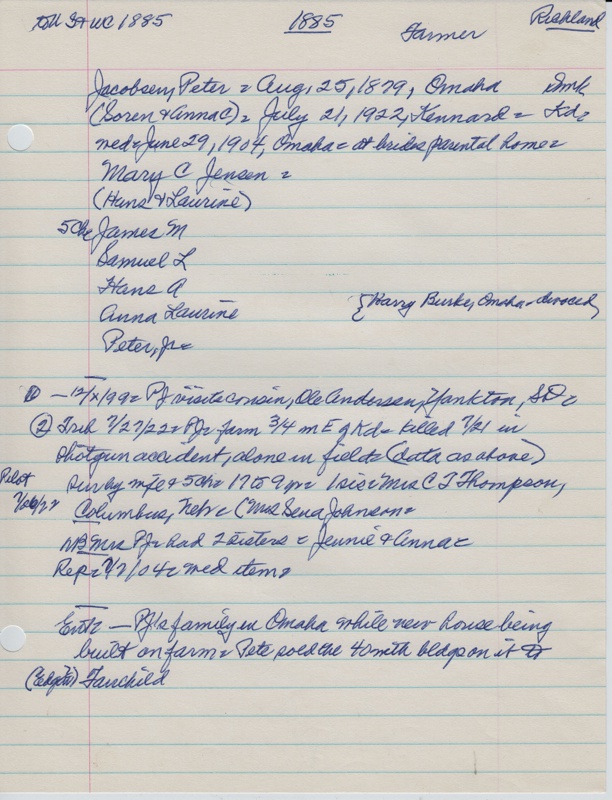 1885 1885 Farmer Richland
Jacobsen, Peter = Aug. 25, 1879, Omaha Dmk
(Soren & Anna C) = July 21, 1922, Kennard = Kd=
med = June 29, 1904, Omaha = at brides parental home =
Mary C Jensen =
(Hans & Laurine)
5 Ch= James M
Samuel L
Hans A
Anna Laurine {Harry Burke, Omaha - divoced}
Peter, Jr =
① - 12/x/99 = PJ visits cousin, Ole Andersen, Yankton, SD =
② Trib 7/27/22 = PJ = farm 3/4 m E of Kd = killed 7/21 in
shotgun accident, alone in field = (data as above)
Pilot 7/26/22 Surv by wife & 5 ch = 17 to 9 yr = 1 sis = Mrs C T Thompson,
Columbus, Nebr = (Mrs Sena Johnson =
NB Mrs PJ = had 2 sisters = Jennie & Anna =
Rep = 7/7/04 = wed item =
Ent = - PJ's family in Omaha while new house being
built on farm = Pete sold the 40 with bldgs on it to
Fairchild